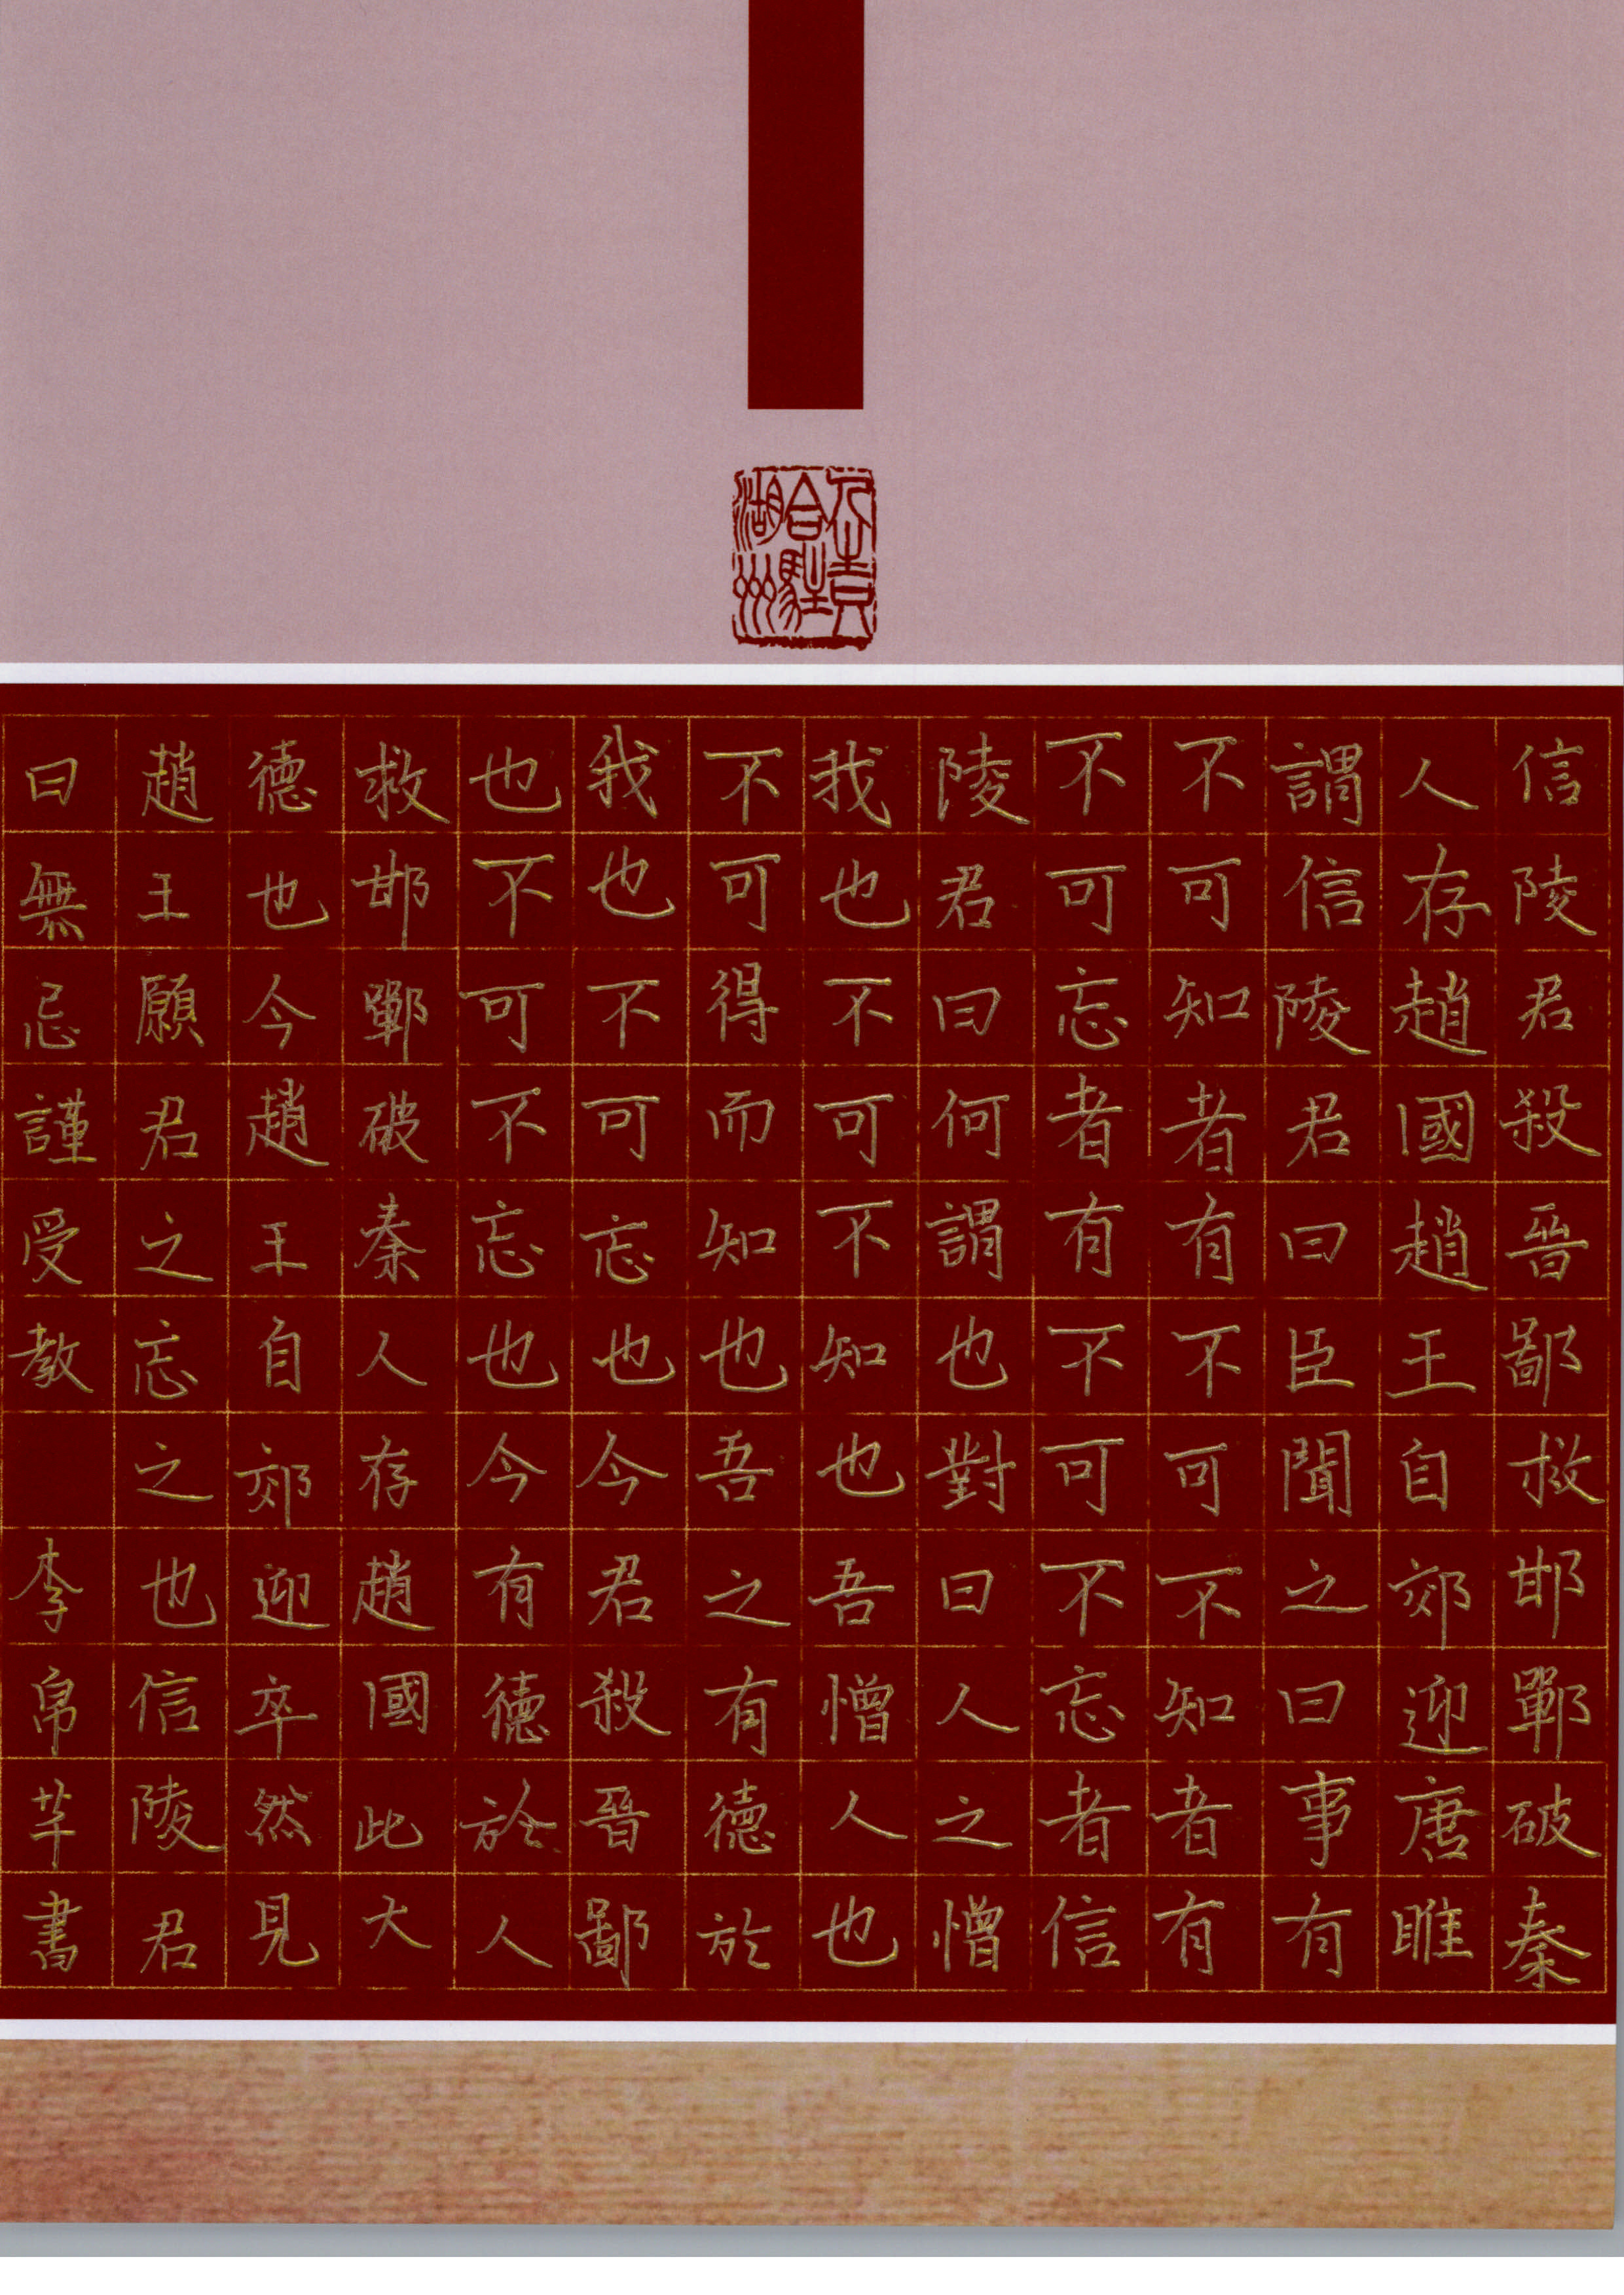 湖州
信陵君殺晉鄙救邯鄲破秦
人存趙國趙王自郊迎唐雎
謂信陵君曰臣聞之曰事有
不可知者有不可不知者有
不可忘者有不可不忘者信
陵君曰何謂也對曰人之憎
我也不可不知也吾憎人也
不可得而知也吾之有德於
我也不可忘也今君殺晉鄙
也不可不忘也今有德於人
救邯鄲破秦人存趙國此大
德也今趙王自郊迎卒然見
趙王願君之忘之也信陵君
曰無忌謹受教 李帛芊書